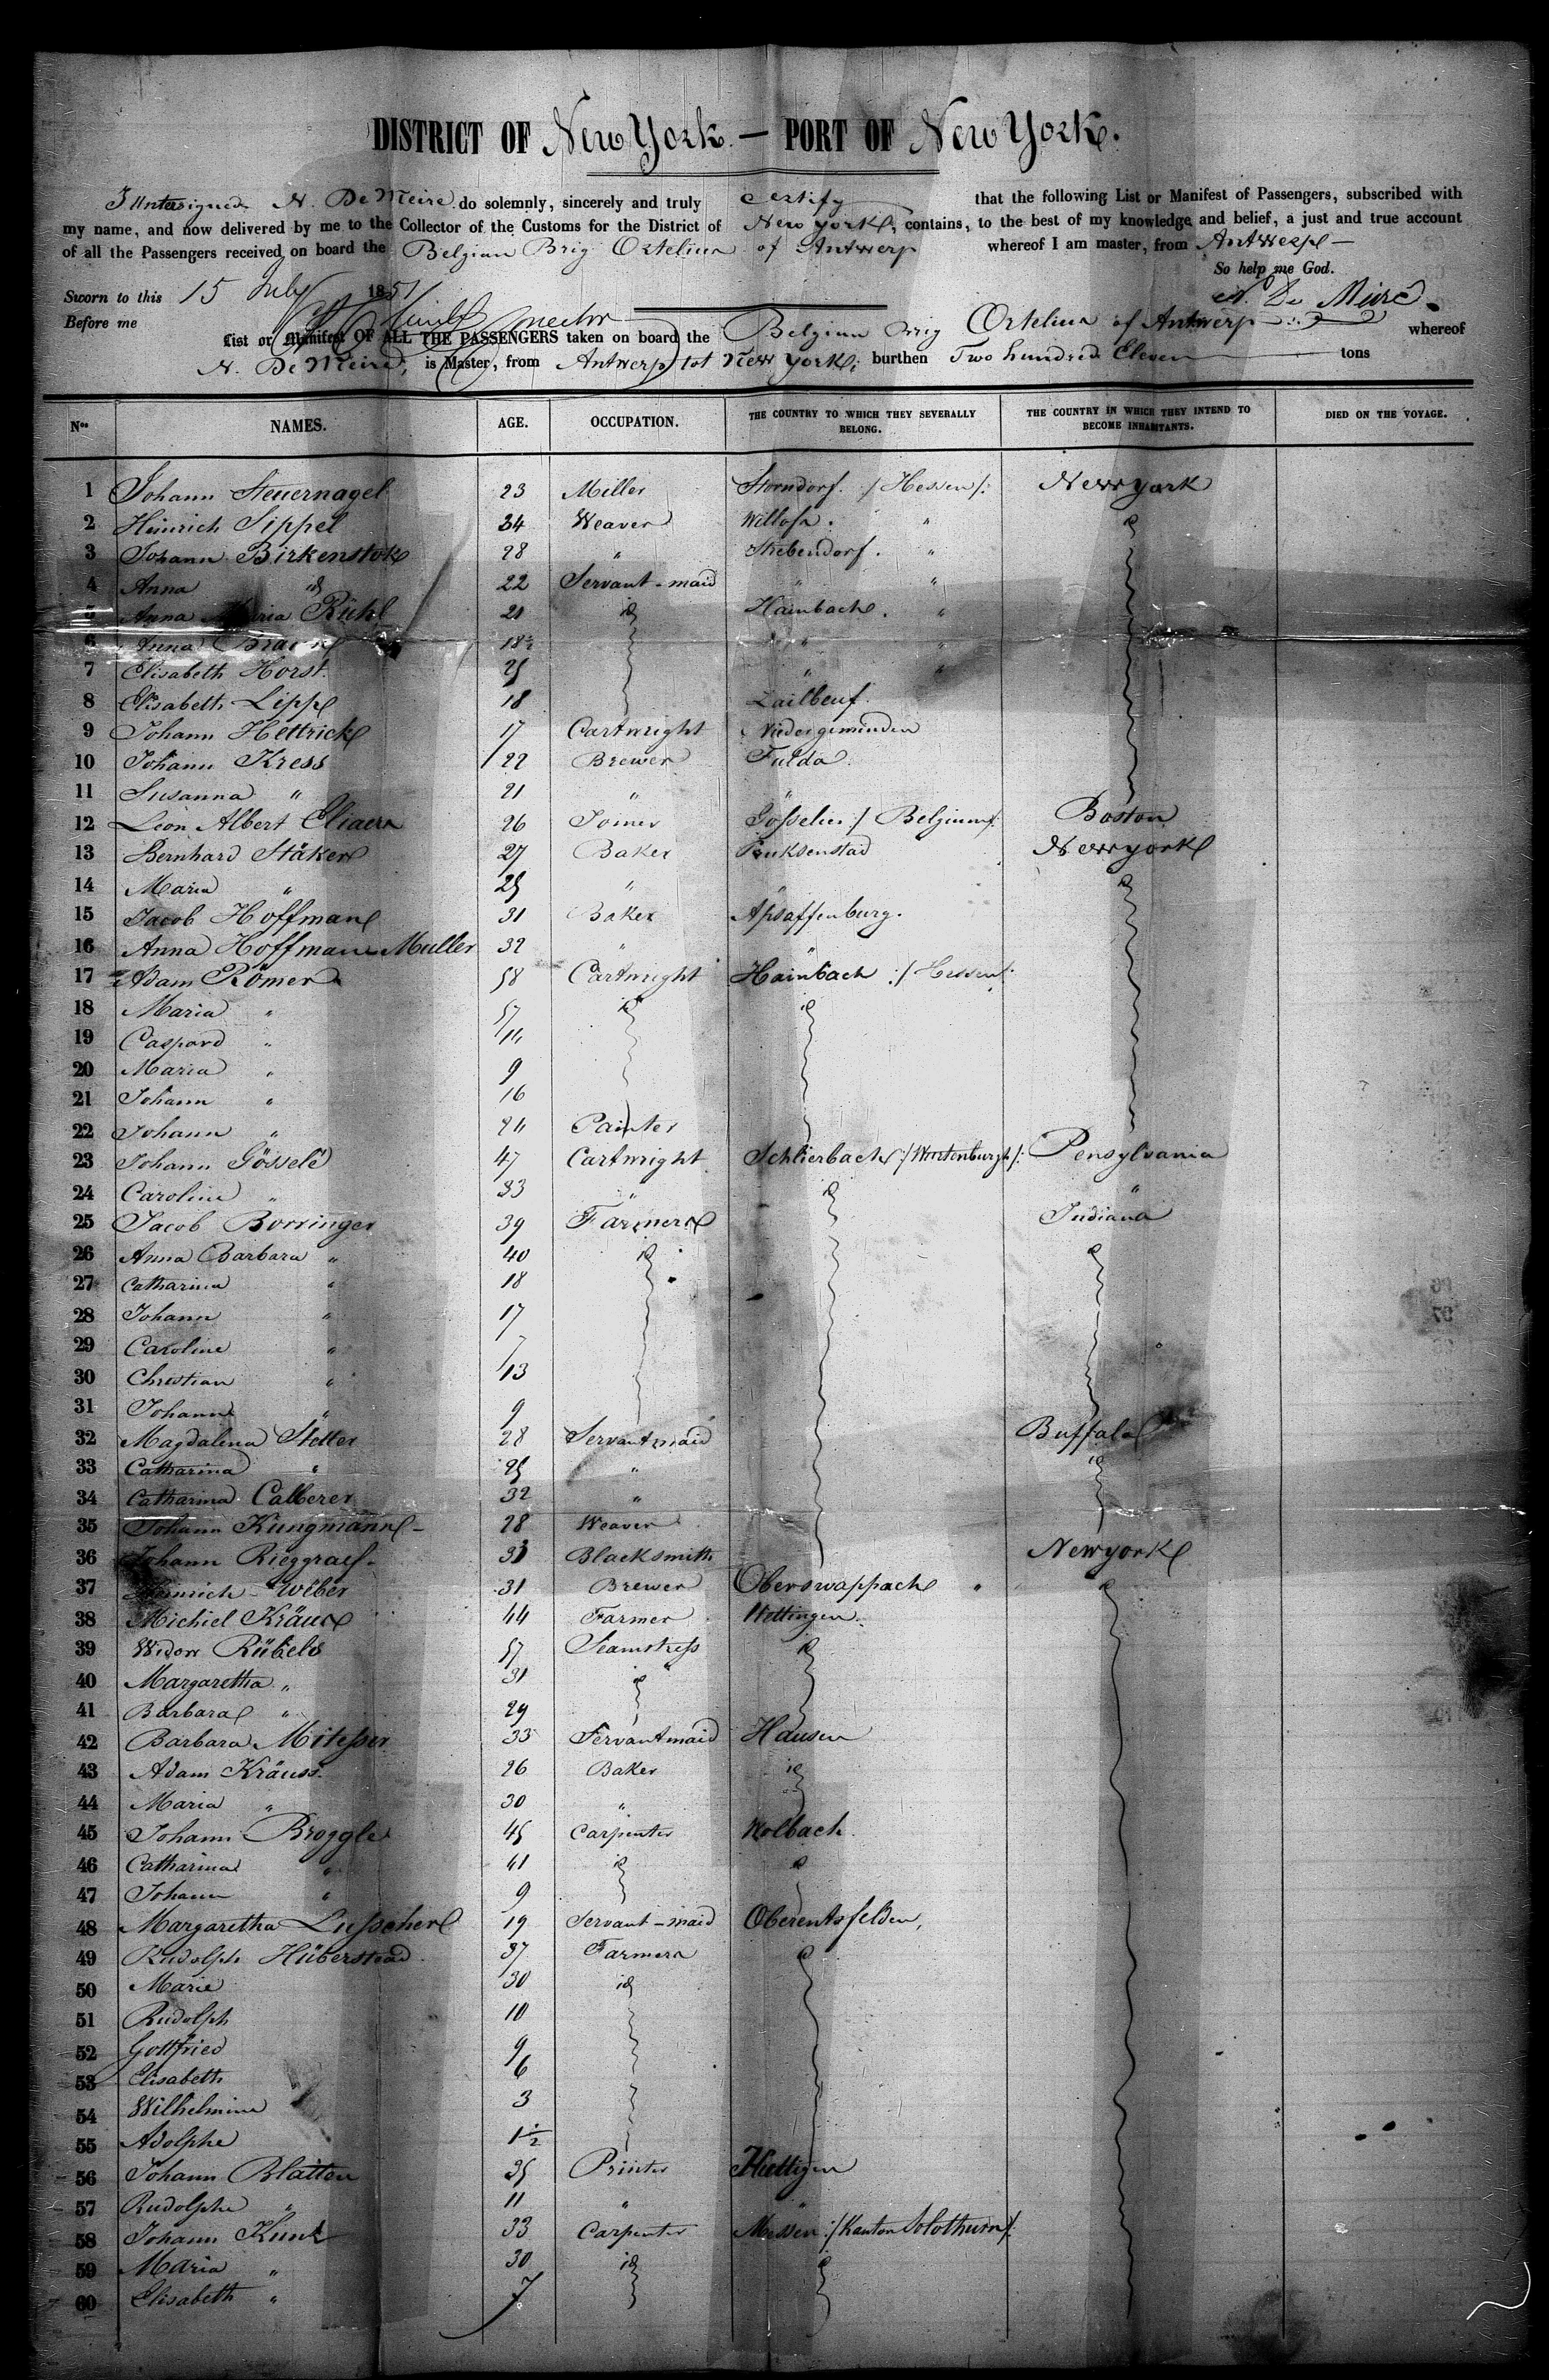 DISTRICT OF New York. — PORT OF New York.
I Undersigned N. De Meire do solemnly, sincerely and truly certify that the following List or Manifest of Passengers, subscribed with
my name, and now delivered by me to the Collector of the Customs for the District of New York, contains, to the best of my knowledge and belief, a just and true account
of all the Passengers received on board the Belgian Brig Ortelius of Antwerp whereof I am master, from Antwerp —
So help me God.
Sworn to this 15 July 1851
N. De Meire
Before me
List or Manifest OF ALL THE PASSENGERS taken on board the Belgian Brig Ortelius of Antwerp whereof
N. De Meire, is Master, from Antwerp tot New York; burthen Two hundred Eleven tons
Nos NAMES. AGE. OCCUPATION. THE COUNTRY TO WHICH THEY SEVERALLY BELONG. THE COUNTRY IN WHICH THEY INTEND TO BECOME INHABITANTS. DIED ON THE VOYAGE.
1 Johann Steuernagel 23 Miller Storndorf. /Hessen/: New york
2 Heinrich Sippel 34 Weaver Willofs. " id
3 Johann Birkenstok 28 " Strebendorf. "
4 Anna id 22 Servant-maid " "
5 Anna Maria Rühl 21 id Hainbach. "
6 Anna Braun 18½ " "
7 Elisabeth Horst. 25 " "
8 Elisabeth Lipp 18
9 Johann Hettrick 17 Cartwright Niedergemunden
10 Johann Kress 22 Brewer Fulda.
11 Susanna " 21 " "
12 Leon Albert 26 Joiner Gosselies :/ Belgium/: Boston
13 Bernhard Stäker 27 Baker New york
14 Maria " 25 " " id
15 Jacob Hoffman 31 Baker Assaffenburg.
16 Anna Hoffman Muller 32 " "
17 Adam Römer 58 Cartwright Hainbach :/ Hessen/:
18 Maria " 57 id id
19 Caspard " 14
20 Maria " 9
21 Johann " 16
22 Johann " 24 Painter
23 Johann Gösselé 47 Cartwright Schlierbach :/Wurtenburgh/: Pensylvania
24 Caroline " 33 " id "
25 Jacob Borringer 39 Farmers Indiana
26 Anna Barbara " 40 id id
27 Catharina " 18
28 Johann " 17
29 Caroline "
30 Christian " 13
31 Johann " 9
32 Magdalena Stetter 28 Servantmaid Buffalo
33 Catharina " 25 " id
34 Catharina Calberer 32 "
35 Johann Kungmann 28 Weaver
36 Johann Rieggraef 31 Blacksmith New york
37 Heinrich Weber 31 Brewer Oberswappach " id
38 Michiel Kräus 44 Farmer Wettingen.
39 Widow Rübels 57 Seamstress id
40 Margaretha " 31 id
41 Barbara " 29
42 Barbara Mitesser 33 Servantmaid Hausen
43 Adam Kräuss. 26 Baker id
44 Maria " 30 "
45 Johann Broggle 45 Carpenter Kolbach.
46 Catharina " 41 id id
47 Johann " 9
48 Margaretha Lusscher 19 Servant-maid Oberentsfelden,
49 Rudolph Hüberstead. 37 Farmers id
50 Marie 30 id
51 Rudolph 10
52 Gottfried 9
53 Elisabeth 6
54 Wilhelmine 3
55 Adolphe 1½
56 Johann Blatten 35 Printer Huttigen
57 Rudolphe " 11 " "
58 Johann Kunz 33 Carpenter Messen :/Kanton Solothurn/:
59 Maria " 30 id id
60 Elisabeth " 7